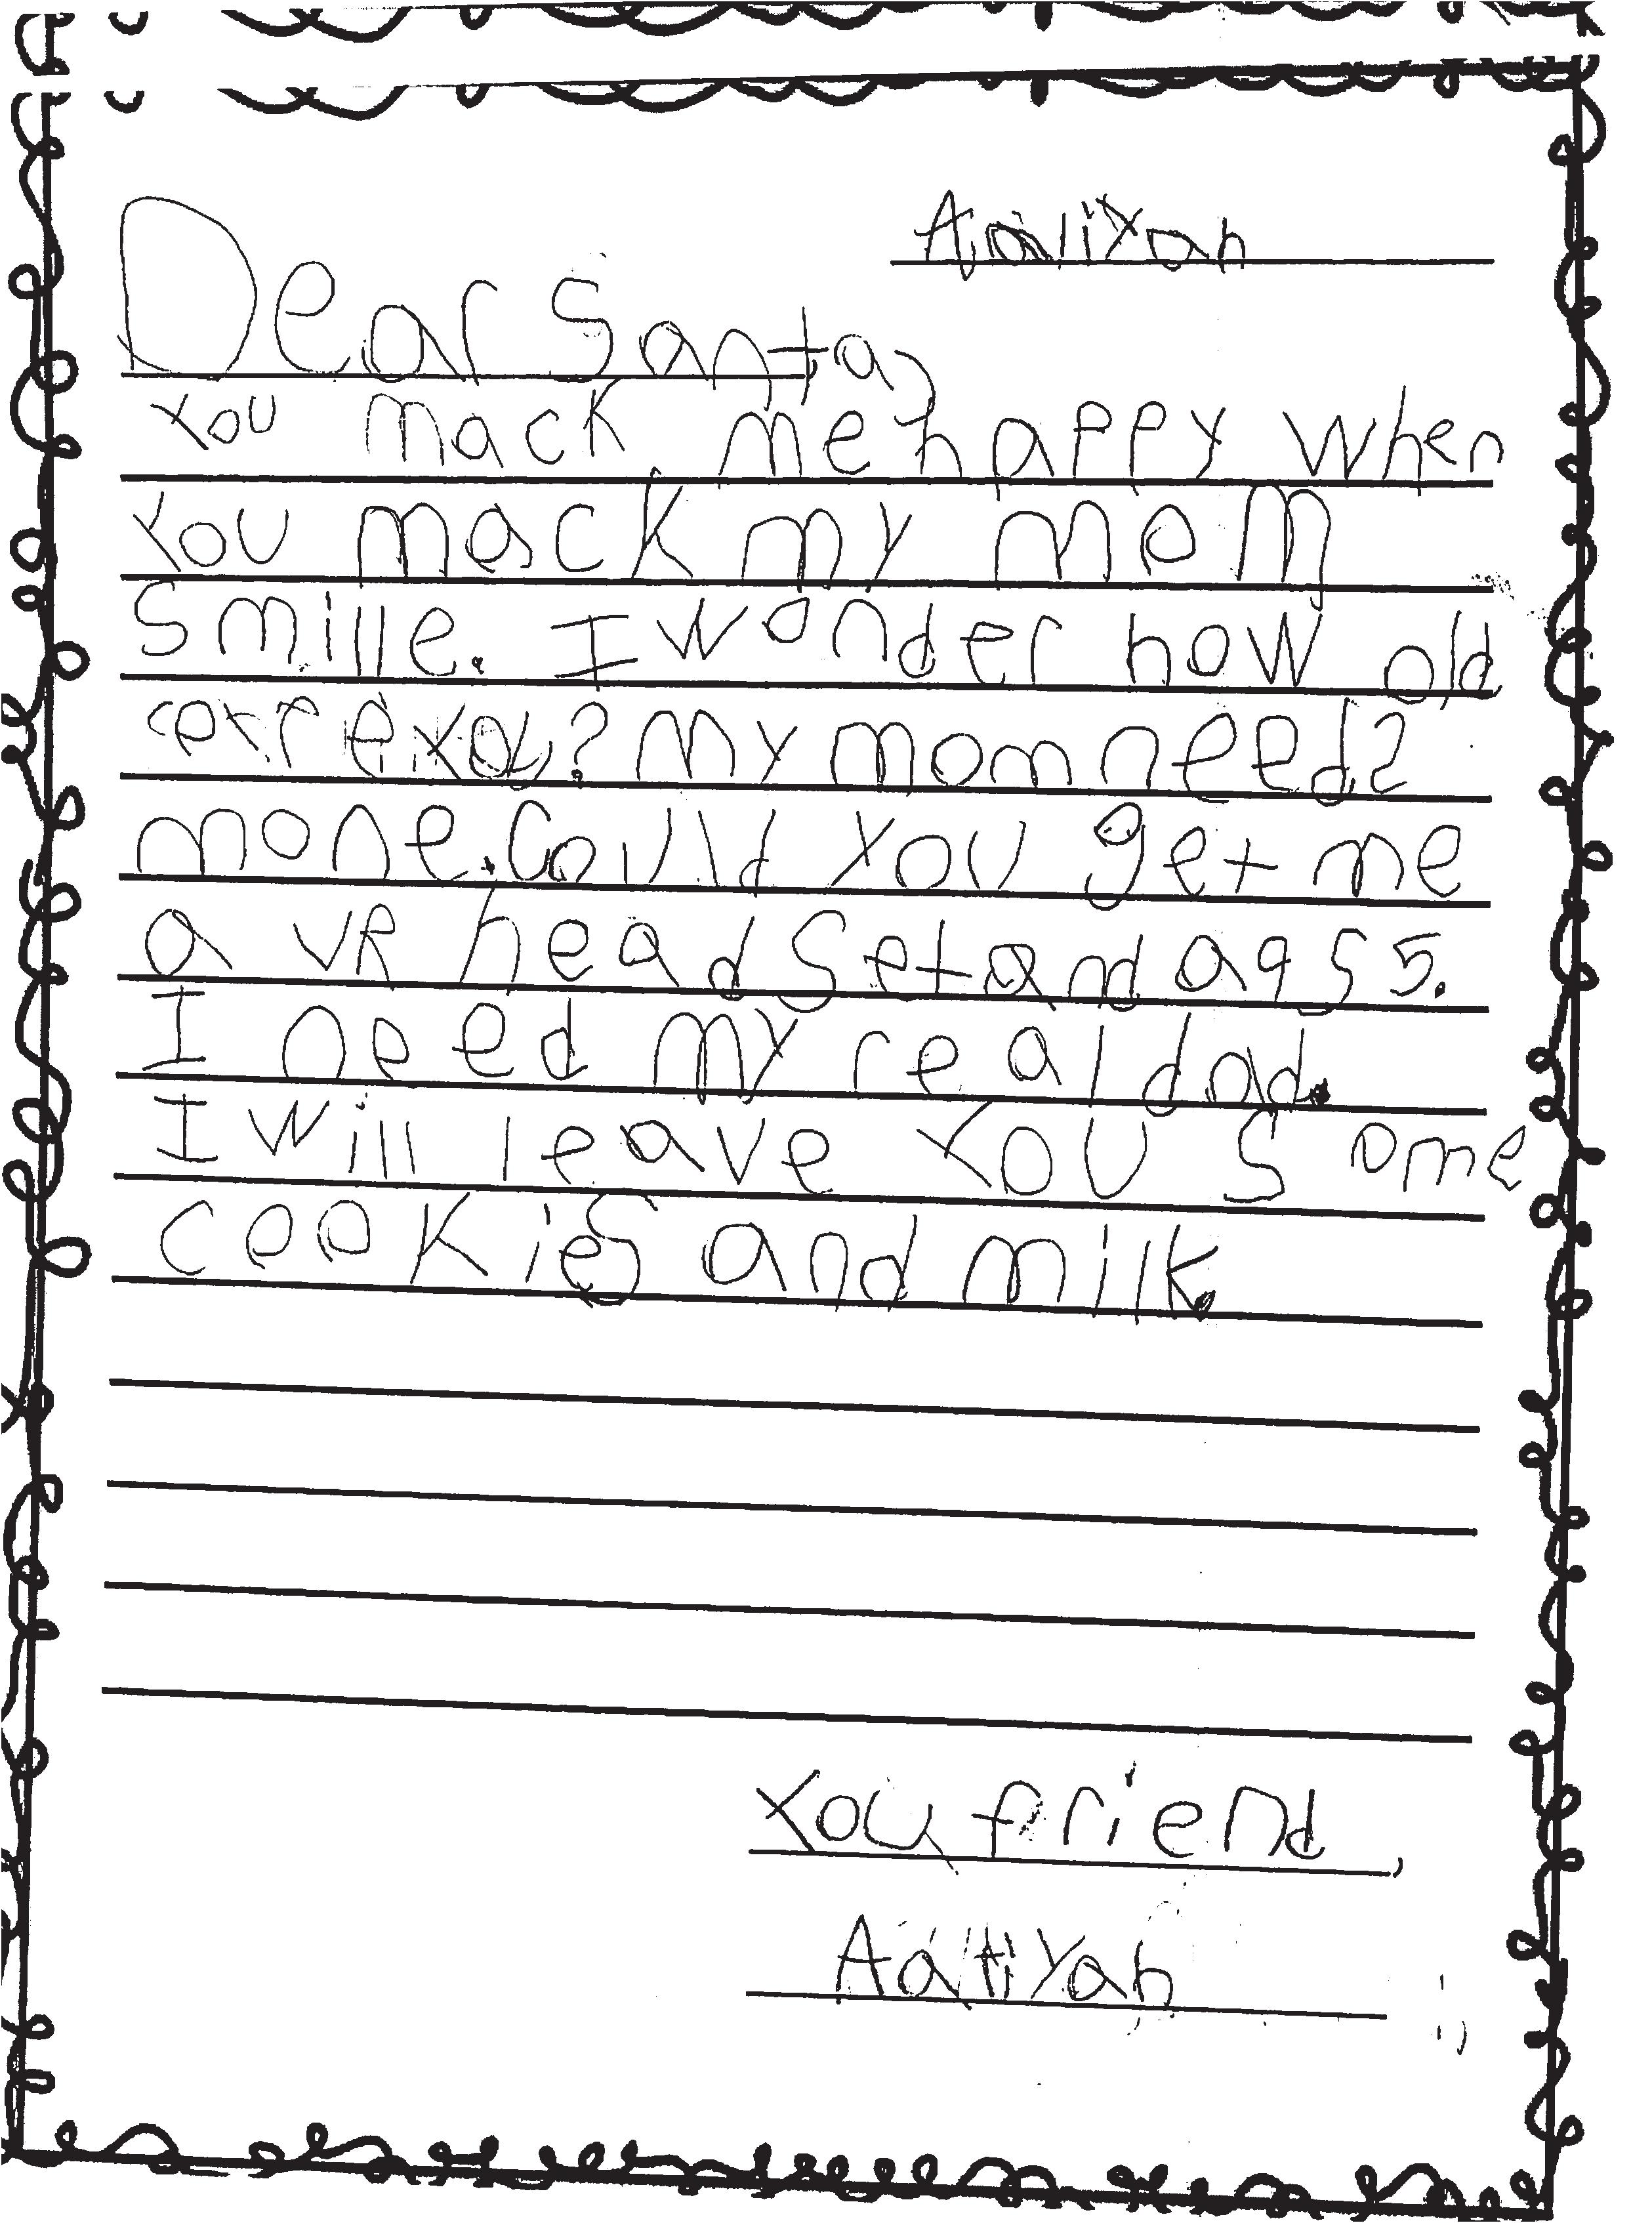 Aaliyah
Dear Santa,
You mack me happy when
you mack my mom
smille. I wonder how old
you? My mom needs
mone. Could you get me
a VR head set and a qs5.
I need my real dad.
I will leave you some
cookies and milk.
You friend,
Aaliyah